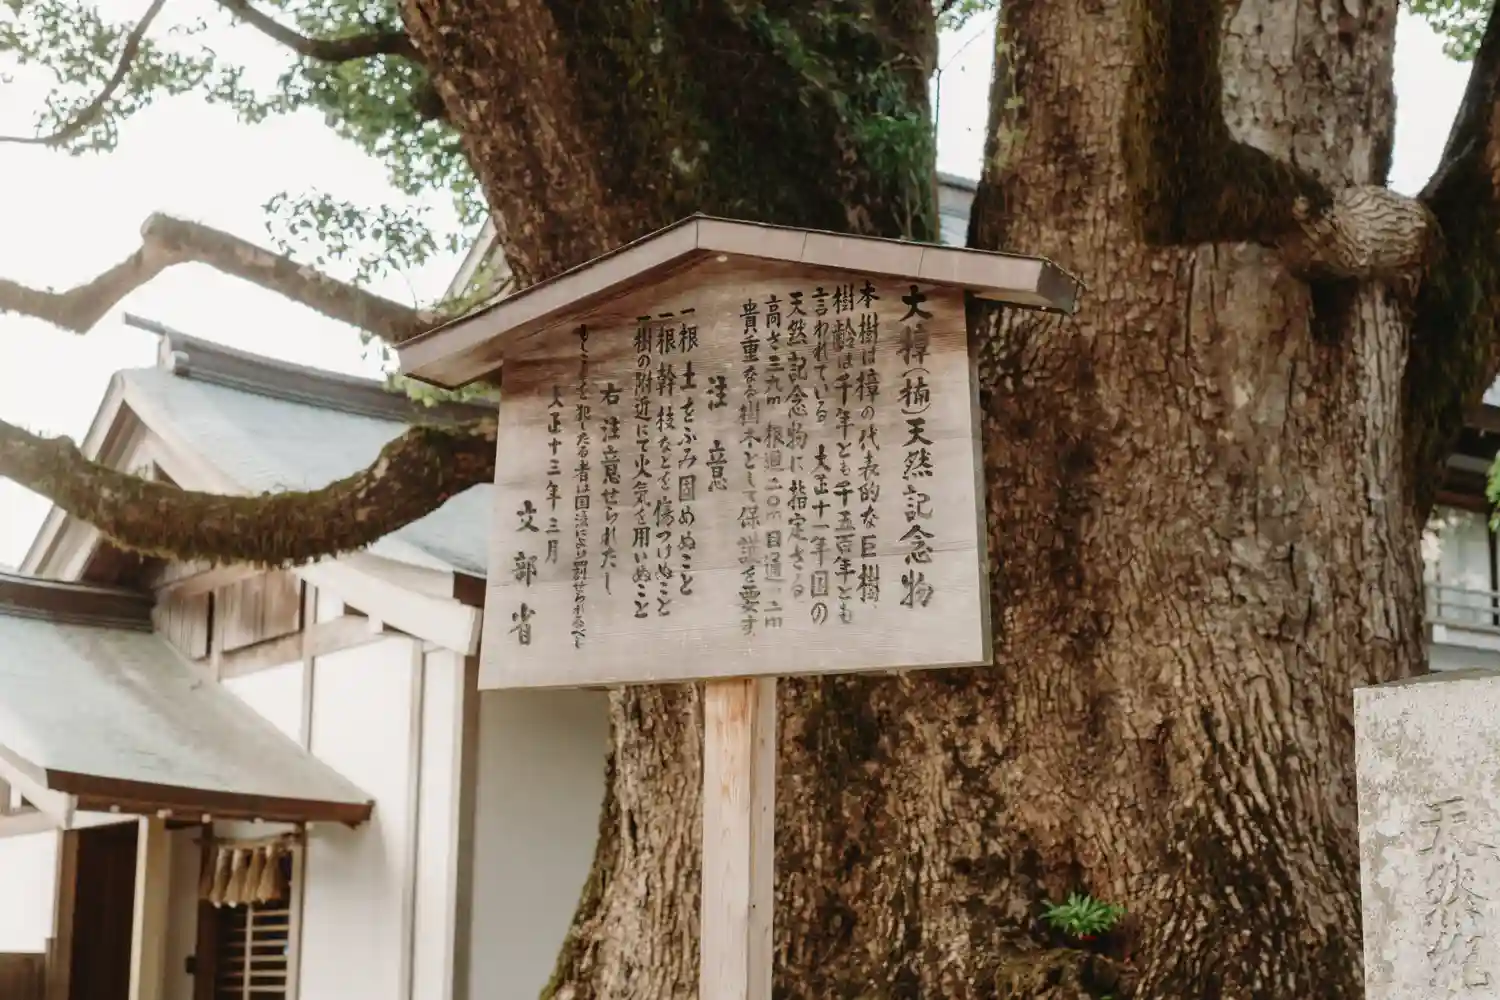 大樟(楠)天然記念物
本樹は樟の代表的な巨樹、
樹齢は千年とも千五百年とも
言われている 大正十一年国の
天然記念物に指定さる
高さ三九m 根廻二〇m 目通一二m
貴重なる樹木として保護を要す
注意
一根土をふみ固めぬこと
一根幹枝などを傷つけぬこと
一樹の附近にて火気を用いぬこと
右注意せられたし
もしこれを犯したる者は国法により罰せられるべし
大正十三年三月
文部省
天然記